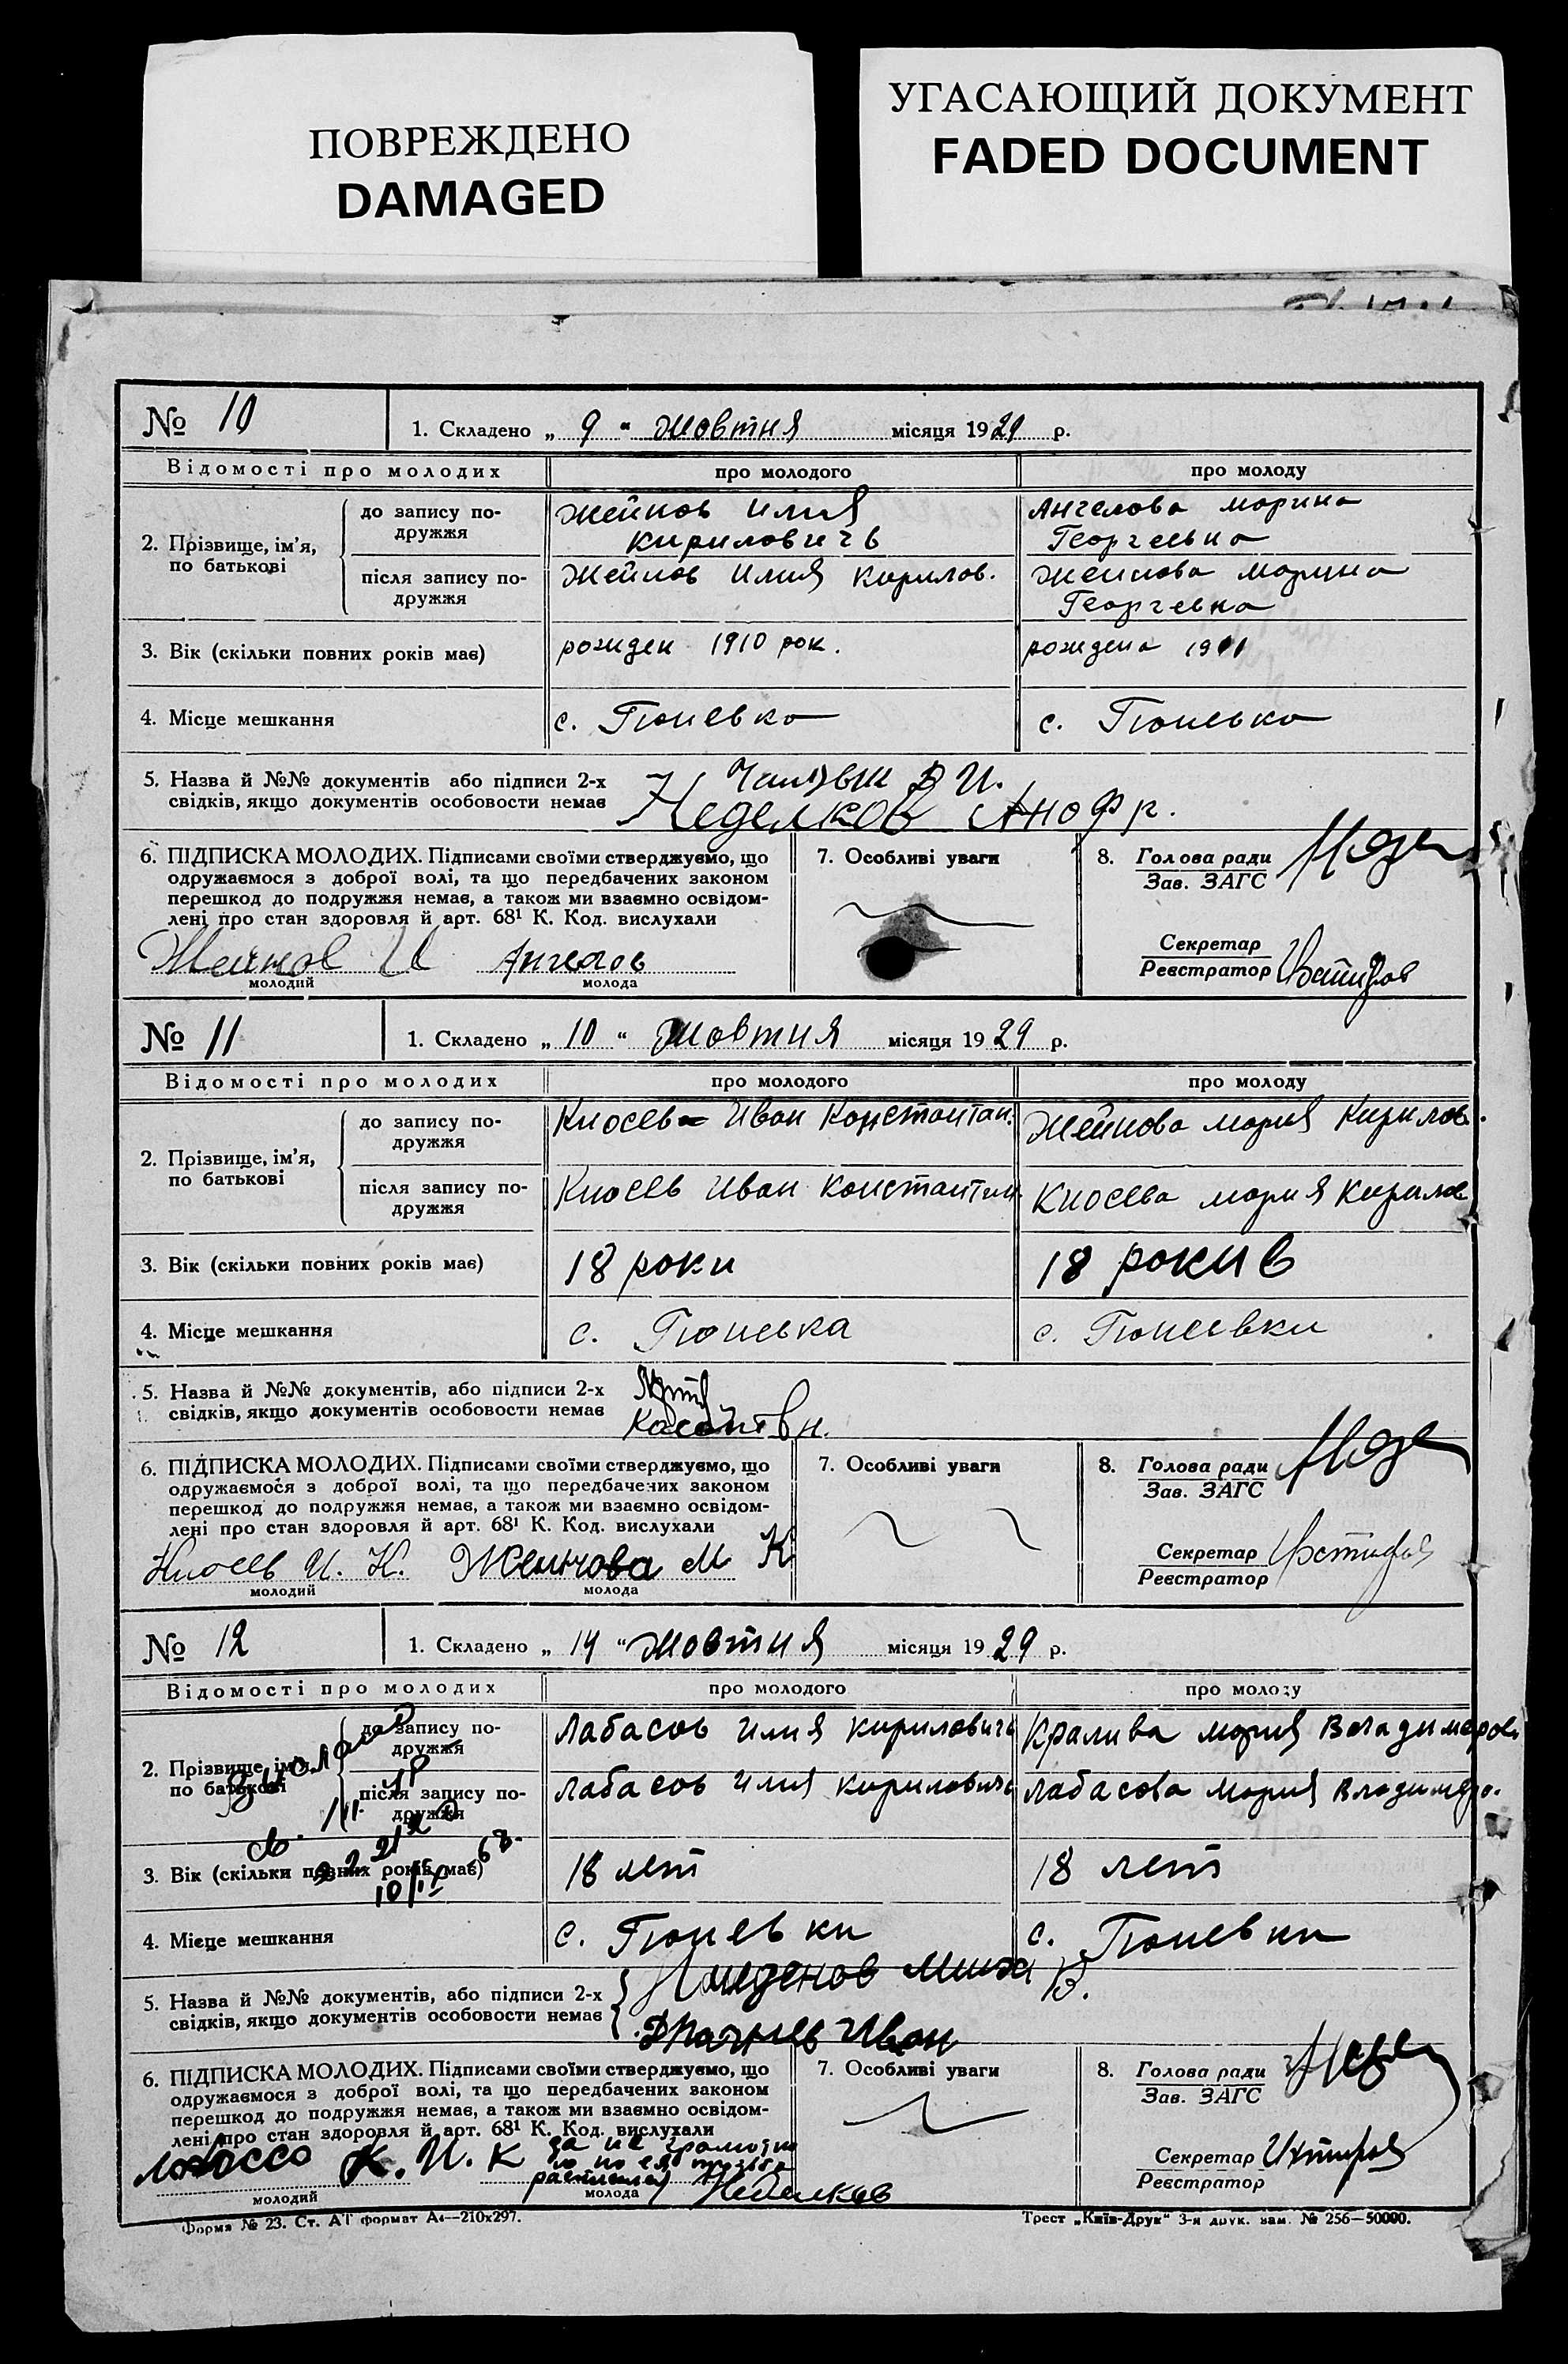 ПОВРЕЖДЕНО
DAMAGED
УГАСАЮЩИЙ ДОКУМЕНТ
FADED DOCUMENT
№ 10
1. Складено „ 9 “ жовтня місяця 1929 р.
Відомості про молодих
про молодого
про молоду
2. Прізвище, ім’я,
по батькові
до запису по-
дружжя
Жейнов Илия
Кириловичь
Ангелова Марина
Георгевна
після запису по-
дружжя
Жейнов Илия Кирилов.
Жейнова Марина
Георгевна
3. Вік (скільки повних років має)
рожден 1910 рок.
рождена 1911
4. Місце мешкання
с. Гюневка
с. Гюневка
5. Назва й №№ документів або підписи 2-х
свідків, якщо документів особовости немає
И.
Неделков Анофр.
6. ПІДПИСКА МОЛОДИХ. Підписами своїми стверджуємо, що
одружаємося з доброї волі, та що передбачених законом
перешкод до подружжя немає, а також ми взаємно освідом-
лені про стан здоровля й арт. 68¹ К. Код. вислухали
Жейнов И Ангелов
молодий
молода
7. Особливі уваги
8. Голова ради
Зав. ЗАГС
Секретар
Реєстратор
№ 11
1. Складено „ 10 “ Жовтня місяця 1929 р.
Відомості про молодих
про молодого
про молоду
2. Прізвище, ім’я,
по батькові
до запису по-
дружжя
Киосев Иван Константин.
Жейнова Мария Кирилов.
після запису по-
дружжя
Киосев Иван Константин.
Киосева Мария Кирилов
3. Вік (скільки повних років має)
18 роки
18 рокив
4. Місце мешкання
с. Гюневка
с. Гюневки
5. Назва й №№ документів, або підписи 2-х
свідків, якщо документів особовости немає
6. ПІДПИСКА МОЛОДИХ. Підписами своїми стверджуємо, що
одружаємося з доброї волі, та що передбачених законом
перешкод до подружжя немає, а також ми взаємно освідом-
лені про стан здоровля й арт. 68¹ К. Код. вислухали
Киосев И. К. Жейнова М К
молодий
молода
7. Особливі уваги
8. Голова ради
Зав. ЗАГС
Секретар
Реєстратор
№ 12
1. Складено „ 14 “ Жовтня місяця 1929 р.
Відомості про молодих
про молодого
про молоду
2. Прізвище, ім’я,
по батькові
до запису по-
дружжя
Лабасов Илия Кириловичь
Кралива Мария Владимеров
після запису по-
дружжя
Лабасов Илия Кириловичь
Лабасова Мария Владимеро.
3. Вік (скільки повних років має)
18 лет
18 лет
4. Місце мешкання
с. Гюневки
с. Гюневки
5. Назва й №№ документів, або підписи 2-х
свідків, якщо документів особовости немає
Найденов Миша В.
Иван
6. ПІДПИСКА МОЛОДИХ. Підписами своїми стверджуємо, що
одружаємося з доброї волі, та що передбачених законом
перешкод до подружжя немає, а також ми взаємно освідом-
лені про стан здоровля й арт. 68¹ К. Код. вислухали
И. К за
Неделков
молодий
молода
7. Особливі уваги
8. Голова ради
Зав. ЗАГС
Секретар
Реєстратор
Форма № 23. Ст. АТ формат А₄—210х297.
Трест „Київ-Друк“ 3-я друк. зам. № 256—50000.